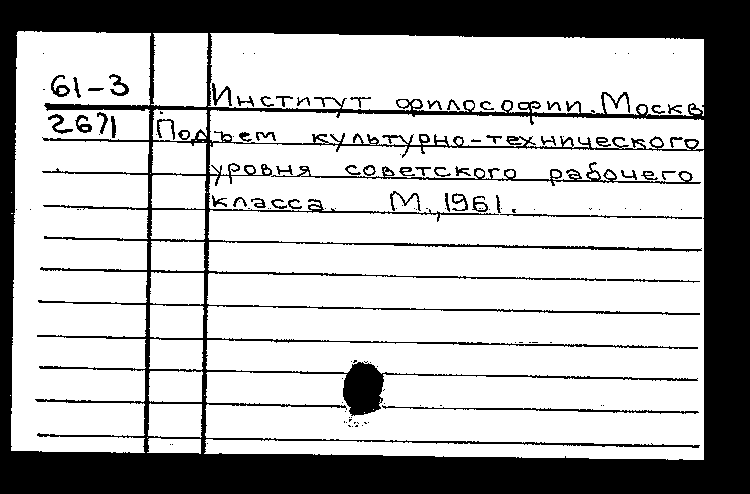 61-3 Институт философии. Москв
2671 Подъем культурно-технического
уровня советского рабочего
класса. М., 1961.